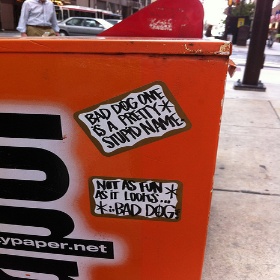 BAD DOG ONE
IS A PRETTY
STUPID NAME*
NOT AS FUN *
AS IT LOOKS...
*:BAD DOG:
ypaper.net